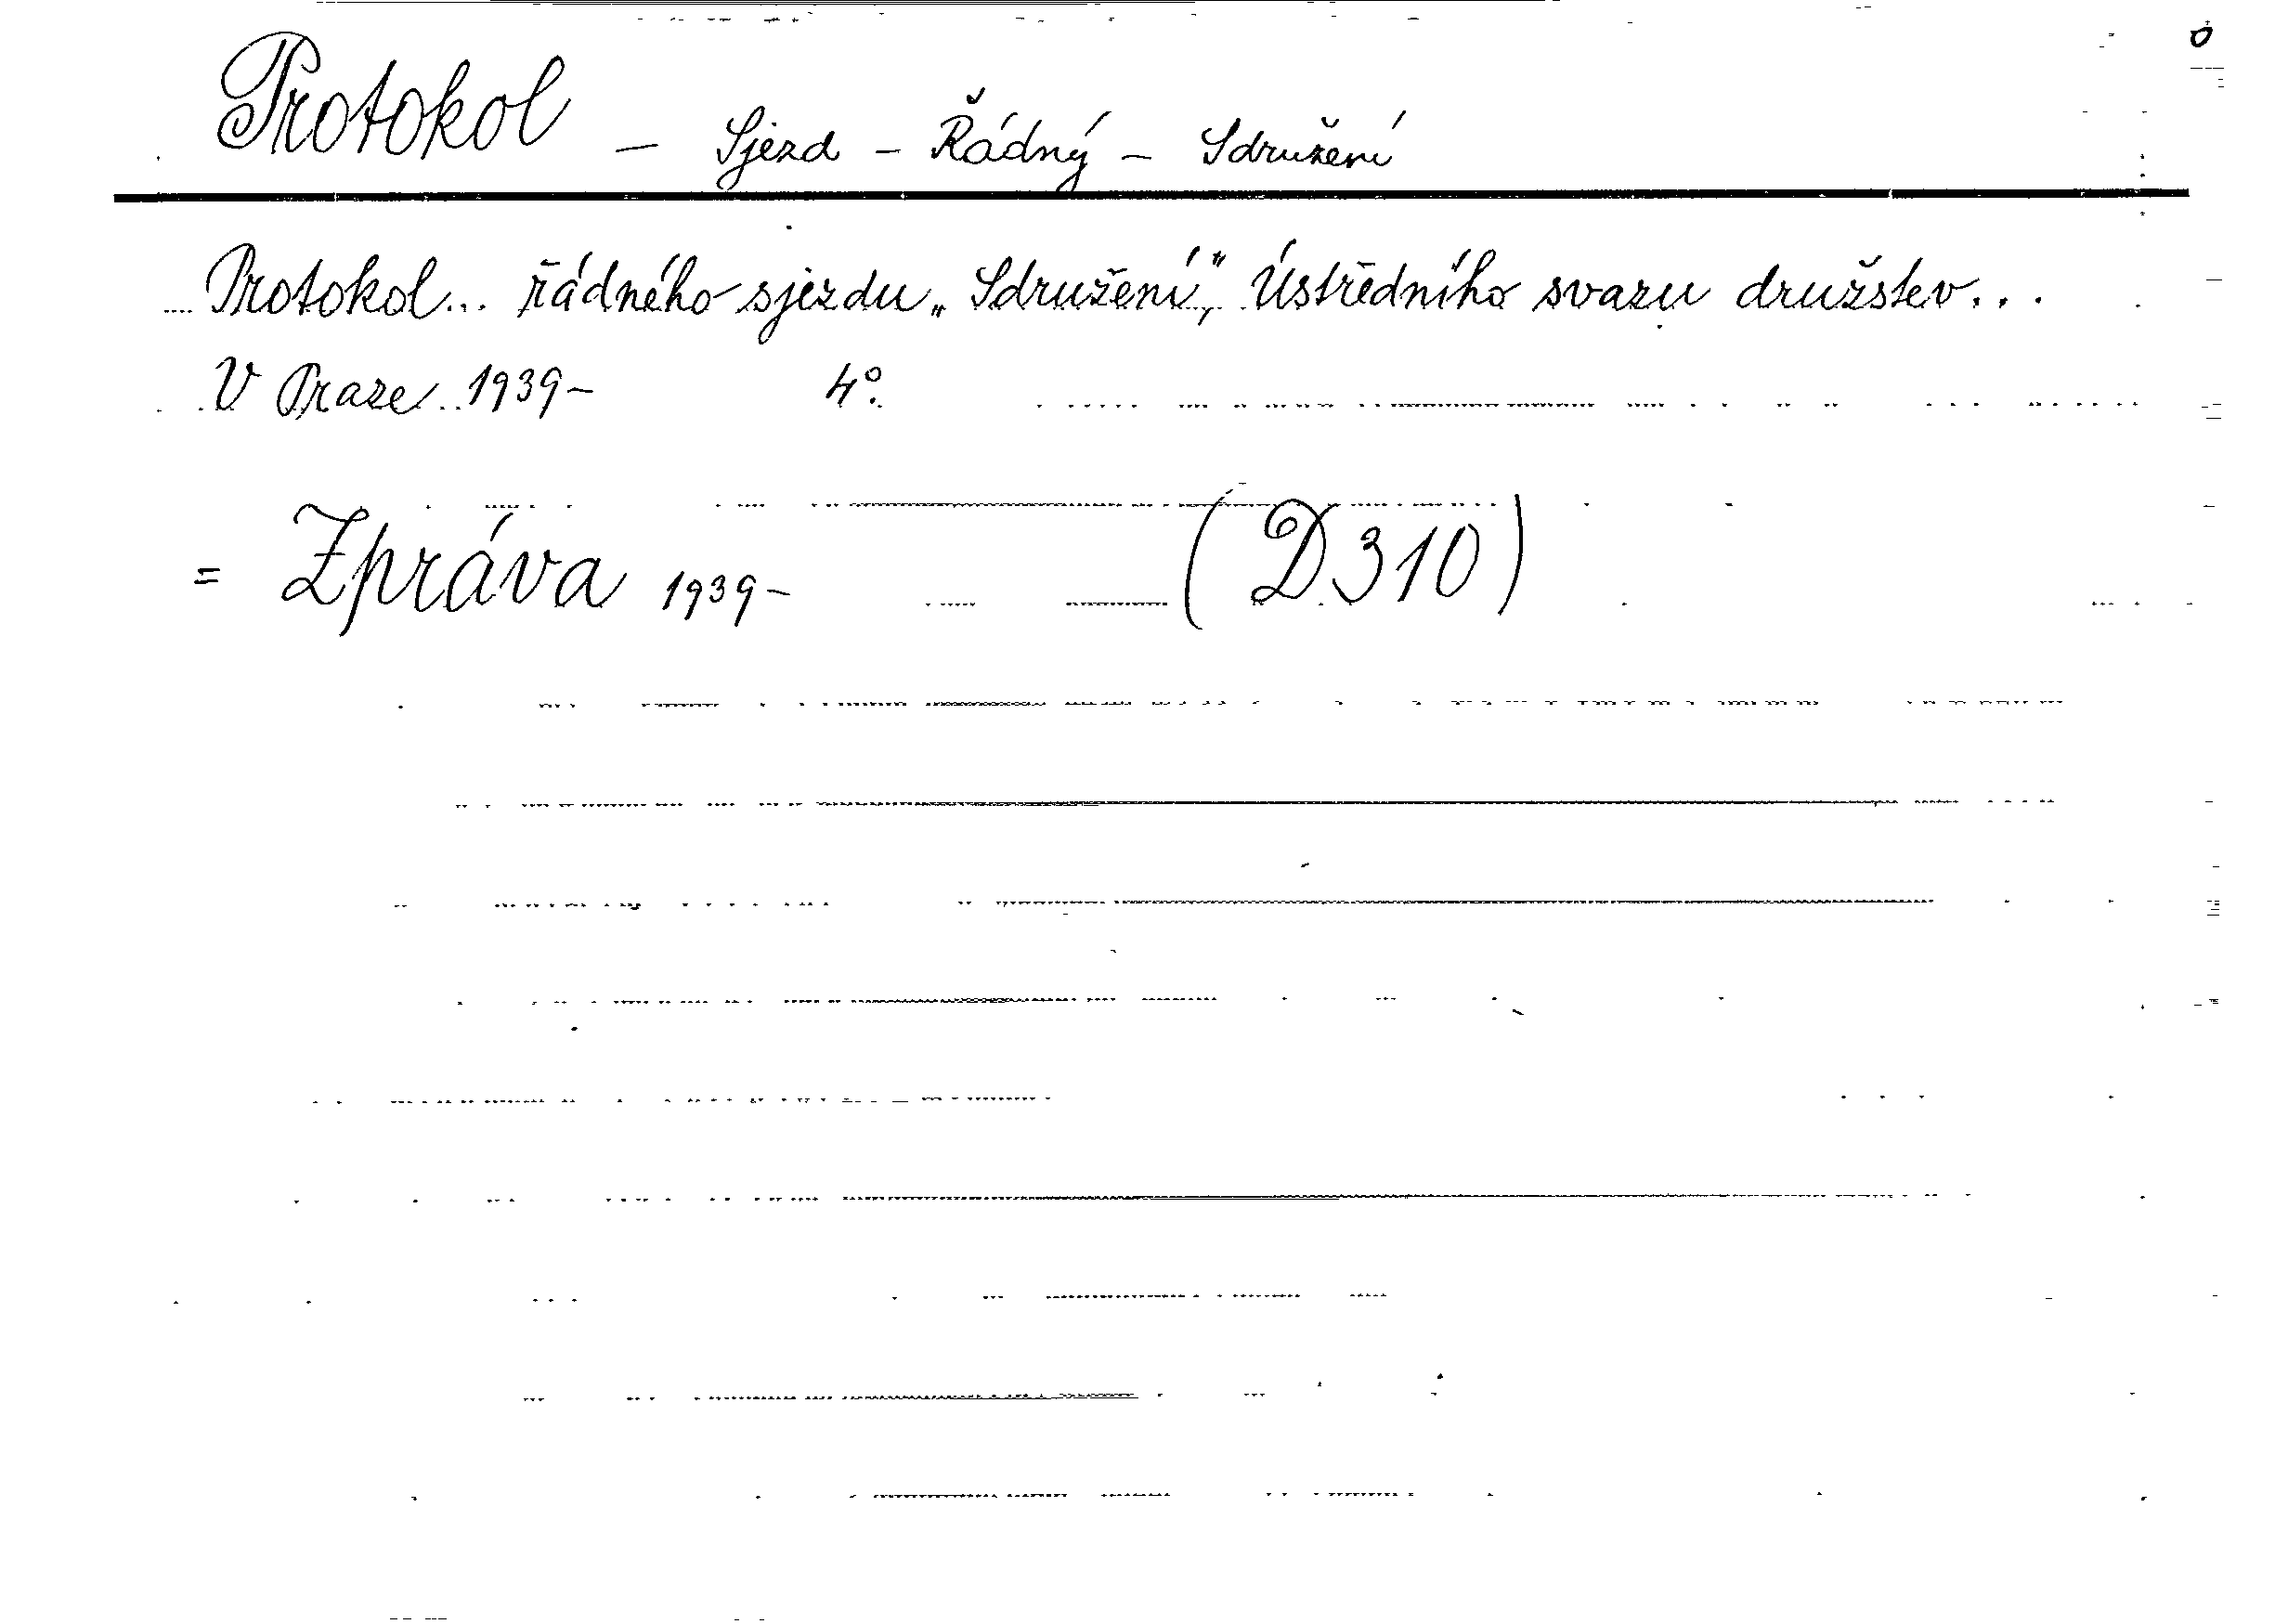 Protokol – Sjezd – Řádný – Sdružení
Protokol... řádného sjezdu „Sdružení“, Ústředního svazu družstev...
V Praze 1939– 4°.
= Zpráva 1939– (D 310)